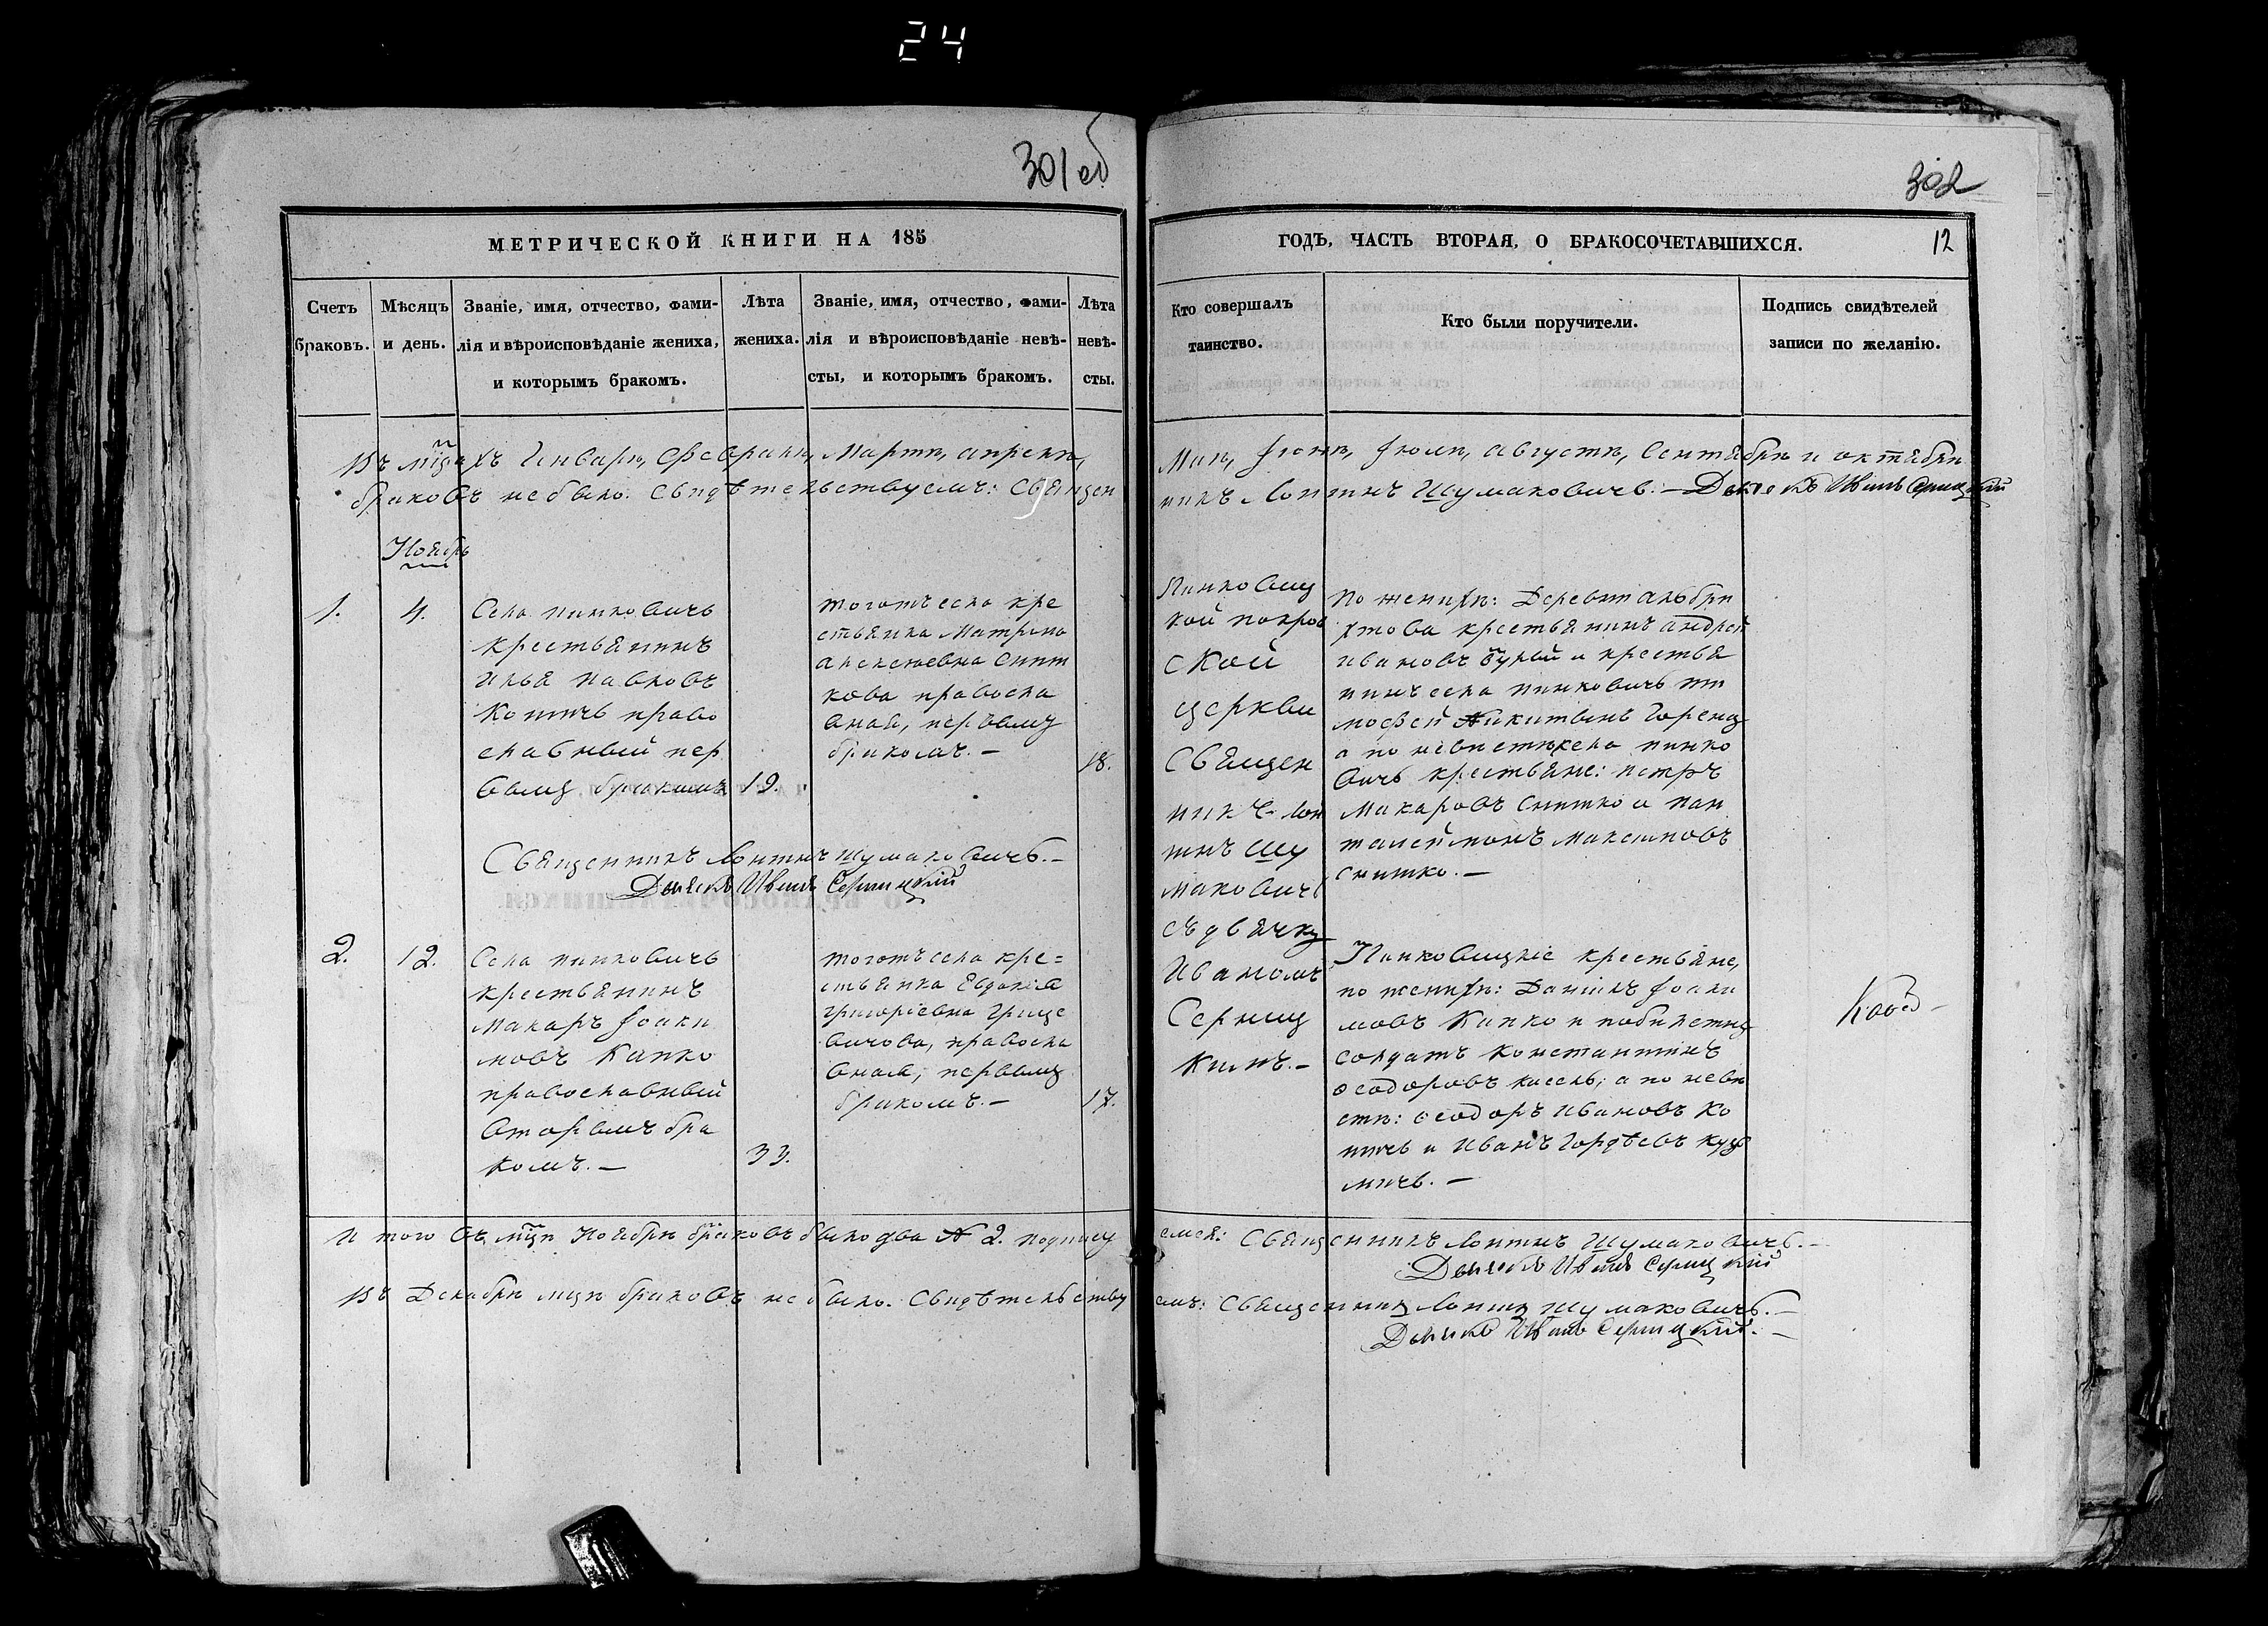 24
301 об
302
МЕТРИЧЕСКОЙ КНИГИ НА 185
ГОДЪ, ЧАСТЬ ВТОРАЯ, О БРАКОСОЧЕТАВШИХСЯ.
12
Счетъ
браковъ.
Мѣсяцъ
и день.
Званіе, имя, отчество, фами-
лія и вѣроисповѣданіе жениха,
и которымъ бракомъ.
Лѣта
жениха.
Званіе, имя, отчество, фами-
лія и вѣроисповѣданіе невѣ-
сты, и которымъ бракомъ.
Лѣта
невѣ-
сты.
Кто совершалъ
таинство.
Кто были поручители.
Подпись свидѣтелей
записи по желанію.
Въ мцахъ Генварѣ, Февралѣ, Мартѣ, апрелѣ,
Маѣ, Іюнѣ, Іюлѣ, августѣ, Сентябрѣ и октябрѣ
браковъ небыло. Свидѣтельствуемъ: Священ
никъ Лонгинъ Шумаковичъ. — Дьячекъ Иванъ Серницкій
Ноябрь
1.
4.
Села пинковичь
крестьянинъ
Илья павловъ
Копичь право
славный пер
вымъ бракомъ
19.
тогожъ села кре
стьянка Матрона
алексеевна Снит
кова правосла
вная, первымъ
бракомъ. —
18.
Священникъ Лонгинъ Шумаковичъ. —
Дьячекъ Иванъ Серницкій
Пинковиц
кой покров
ской
церкви
Священ
никъ Лон
гинъ Шу
маковичъ
съ дьячку
Иваномъ
Серниц
кимъ. —
По женихѣ: Деревни альбри
хтова крестьянинъ андрей
ивановъ и крестья
нинъ села пинковичь ти
мофей Никитинъ Горегляд
а по невѣстѣ села пинко
вичь крестьяне: петръ
Макаровъ Снитко и пан
телеймонъ максимовъ
снитко. —
2.
12.
Села пинковичь
крестьянинъ
Макаръ Іоаки
мовъ Капко
православный
вторымъ бра
комъ. —
33.
тогожъ села кре=
стьянка Евдокія
григоріевна Грице
вичова, правосла
вная, первымъ
бракомъ. —
17.
Пинковицкіе крестьяне,
по женихѣ: Даніилъ Іоаки
мовъ Капко и побилетный
солдатъ константинъ
ѳеодоровъ а по невѣ
стѣ: ѳеодоръ ивановъ Ко
пичь и иванъ Гордѣевъ куз
мичь. —
И того въ мцѣ Ноябрѣ браковъ было два № 2. подпису
емся: Священникъ Лонгинъ Шумаковичъ. —
Дьячекъ Иванъ Серницкій
Въ Декабрѣ мцѣ браковъ небыло. Свидѣтельству
емъ: Священникъ Лонгинъ Шумаковичъ. —
Дьячекъ Иванъ Серницкій. —